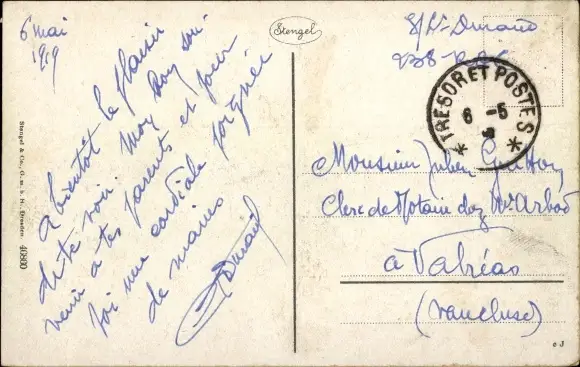 6 mai
1919
Stengel
S/Lt Durand
TRESOR ET POSTES
6 -5
à bientôt le plaisir
de te voir. Mon bon souvenir
à tes parents et pour
toi une cordiale poignée
de mains
Durand
Monsieur Julien
Clerc de Notaire chez Me
à Valréas
(Vaucluse)
Stengel & Co., G. m. b. H., Dresden 49880